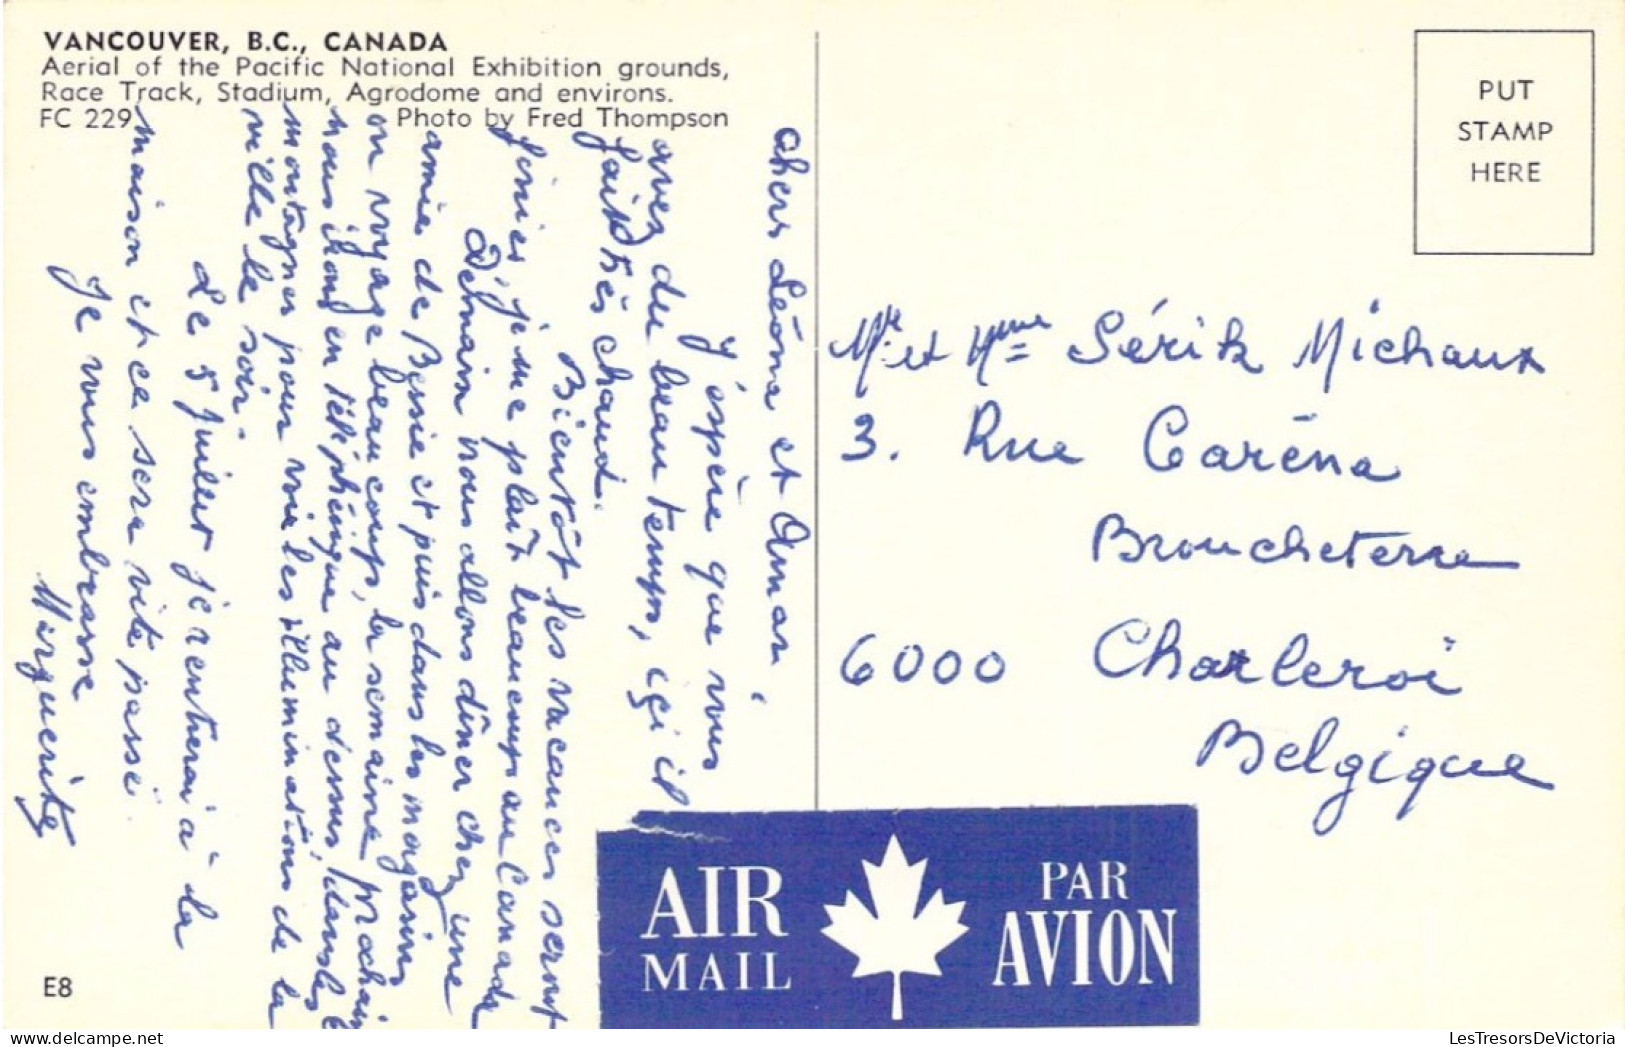 VANCOUVER, B.C., CANADA
Aerial of the Pacific National Exhibition grounds,
Race Track, Stadium, Agrodome and environs.
FC 229 Photo by Fred Thompson
PUT
STAMP
HERE
chers Léona et Omar,
J'éspère que vous
avez du beau temps, içi il
fait très chaud.
Bientôt les vacances seront
finies, je me plaît beaucoup au Canada
Demain nous allons dîner chez une
amie de Bessie et puis dans les magasins
on voyage beaucoup, la semaine prochaine
nous irons en téléphérique au dessus dans les
montagnes pour voir les illuminations de la
ville le soir.
Le 5 juillet je rentrerai à la
maison et ce sera vite passé.
Je vous embrasse
Marguerite
Mr et Mme Sérik Michaux
3. Rue Caréna
Broucheterre
6000 Charleroi
Belgique
AIR MAIL
PAR AVION
E8
LesTresorsDeVictoria